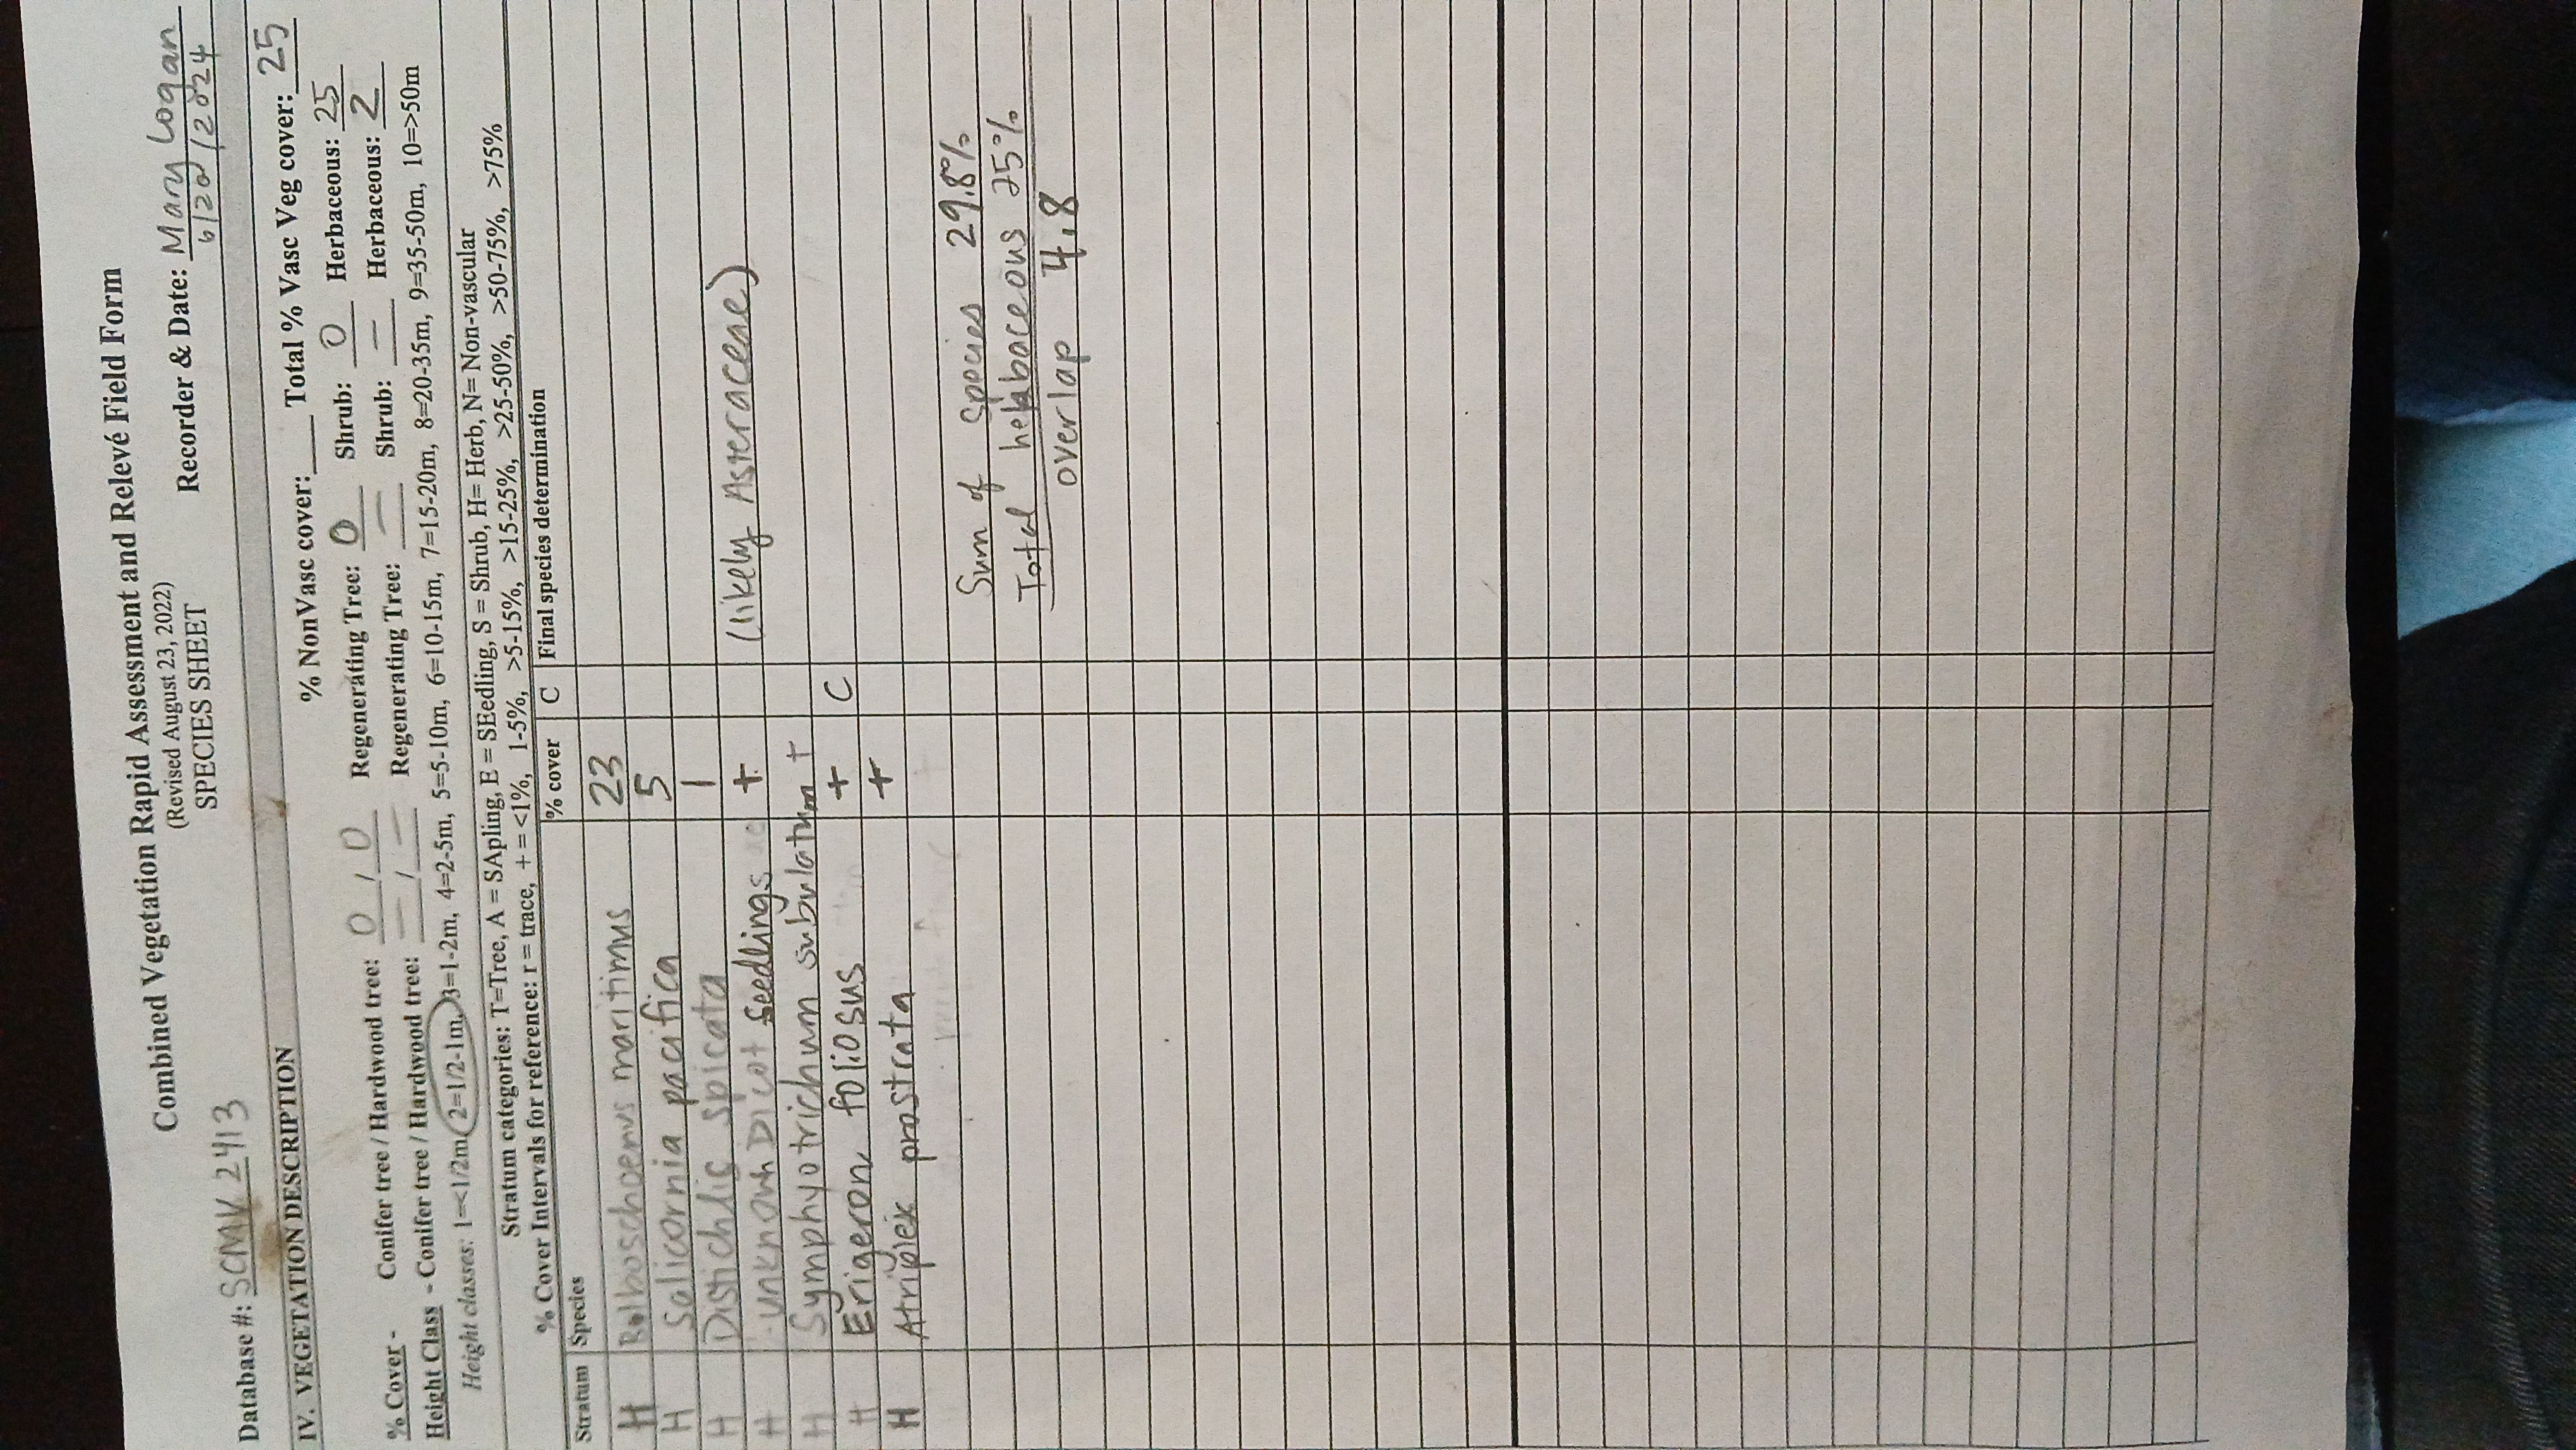 Combined Vegetation Rapid Assessment and Relevé Field Form
(Revised August 23, 2022)
SPECIES SHEET
Recorder & Date: Mary Logan
6/20/2024
Database #: SCMV2413
IV. VEGETATION DESCRIPTION
% NonVasc cover:____ Total % Vasc Veg cover: 25
% Cover - Conifer tree / Hardwood tree: 0 / 0 Regenerating Tree: 0 Shrub: 0 Herbaceous: 25
Height Class - Conifer tree / Hardwood tree: — / — Regenerating Tree: — Shrub: — Herbaceous: 2
Height classes: 1=<1/2m 2=1/2-1m, 3=1-2m, 4=2-5m, 5=5-10m, 6=10-15m, 7=15-20m, 8=20-35m, 9=35-50m, 10=>50m
Stratum categories: T=Tree, A = SApling, E = SEedling, S = Shrub, H= Herb, N= Non-vascular
% Cover Intervals for reference: r = trace, + = <1%, 1-5%, >5-15%, >15-25%, >25-50%, >50-75%, >75%
Stratum Species % cover C Final species determination
H Bolboschoenus maritimus 23
H Salicornia pacifica 5
H Distichlis spicata 1
H unknown Dicot Seedlings + (likely Asteraceae)
H Symphyotrichum subulatum +
H Erigeron foliosus + C
H Atriplex prostrata +
Sum of species 29.8%
Total herbaceous 25%
overlap 4.8